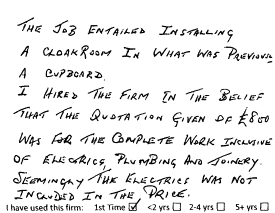 THE JOB ENTAILED INSTALLING
A CLOAKROOM IN WHAT WAS PREVIOUSL
A CUPBOARD.
I HIRED THE FIRM IN THE BELIEF
THAT THE QUOTATION GIVEN OF £800
WAS FOR THE COMPLETE WORK INCLUSIVE
OF ELECTRICS, PLUMBING AND JOINERY.
SEEMINGLY THE ELECTRICS WAS NOT
INCLUDED IN THE PRICE.
I have used this firm: 1st Time ☑ <2 yrs ☐ 2-4 yrs ☐ 5+ yrs ☐